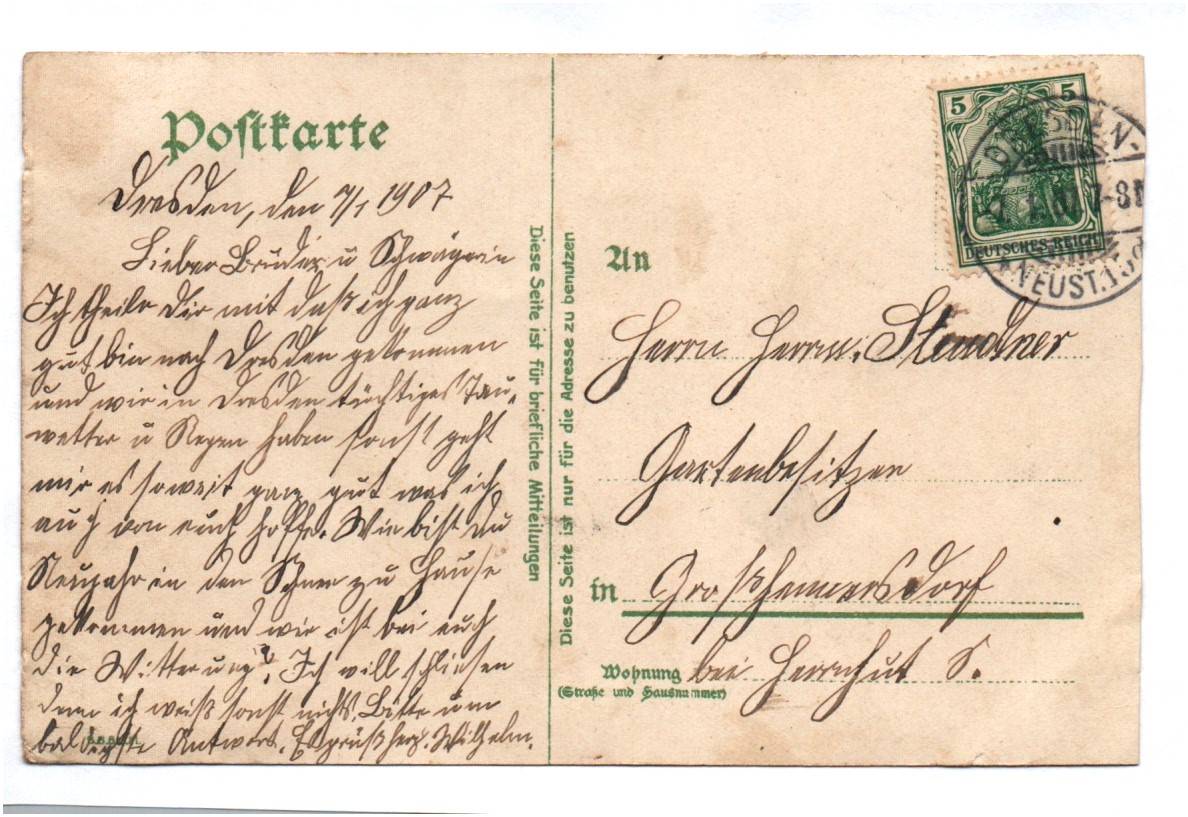 Postkarte
Dresden, den 7/1 1907
Lieber Bruder u Schwägerin
Ich theile Dir mit daß ich ganz
gut bin nach Dresden gekommen
und wir in Dresden tüchtiges Tau-
wetter u Regen haben sonst geht
mir es soweit ganz gut was ich
auch von euch hoffe. Wie bist Du
Neujahr in den Schnee zu Hause
gekommen und wie ist bei euch
die Witterung? Ich will schliesen
denn ich weiß sonst nichts, Bitte um
baldigste Antwort. Es grüßt herz. Wilhelm.
Diese Seite ist für briefliche Mitteilungen
Diese Seite ist nur für die Adresse zu benutzen
5 5
DEUTSCHES REICH
DRESDEN-
7-8
NEUST. 1
An
Herrn Herrm.
Gartenbesitzer
in Großhennersdorf
Wohnung bei Herrnhut S.
(Straße und Hausnummer)